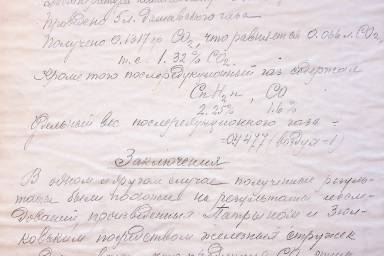 Проведено 5 л. доменного газа
Получено 0.1317 гр CO₂, что равняется 0.066 л. CO₂,
т.е. 1.32% CO₂.
Кроме того послередукционный газ содержал
CnH₂n , CO
2.25% 1.6%
Удельный вес послередукционного газа –
=0,4477 (воздух=1)
Заключения
В одном и другом случае полученные резуль-
таты были похожи на результаты исследо-
ваний, произведенных Патрыном и Зиол-
ковским посредством железных стружек